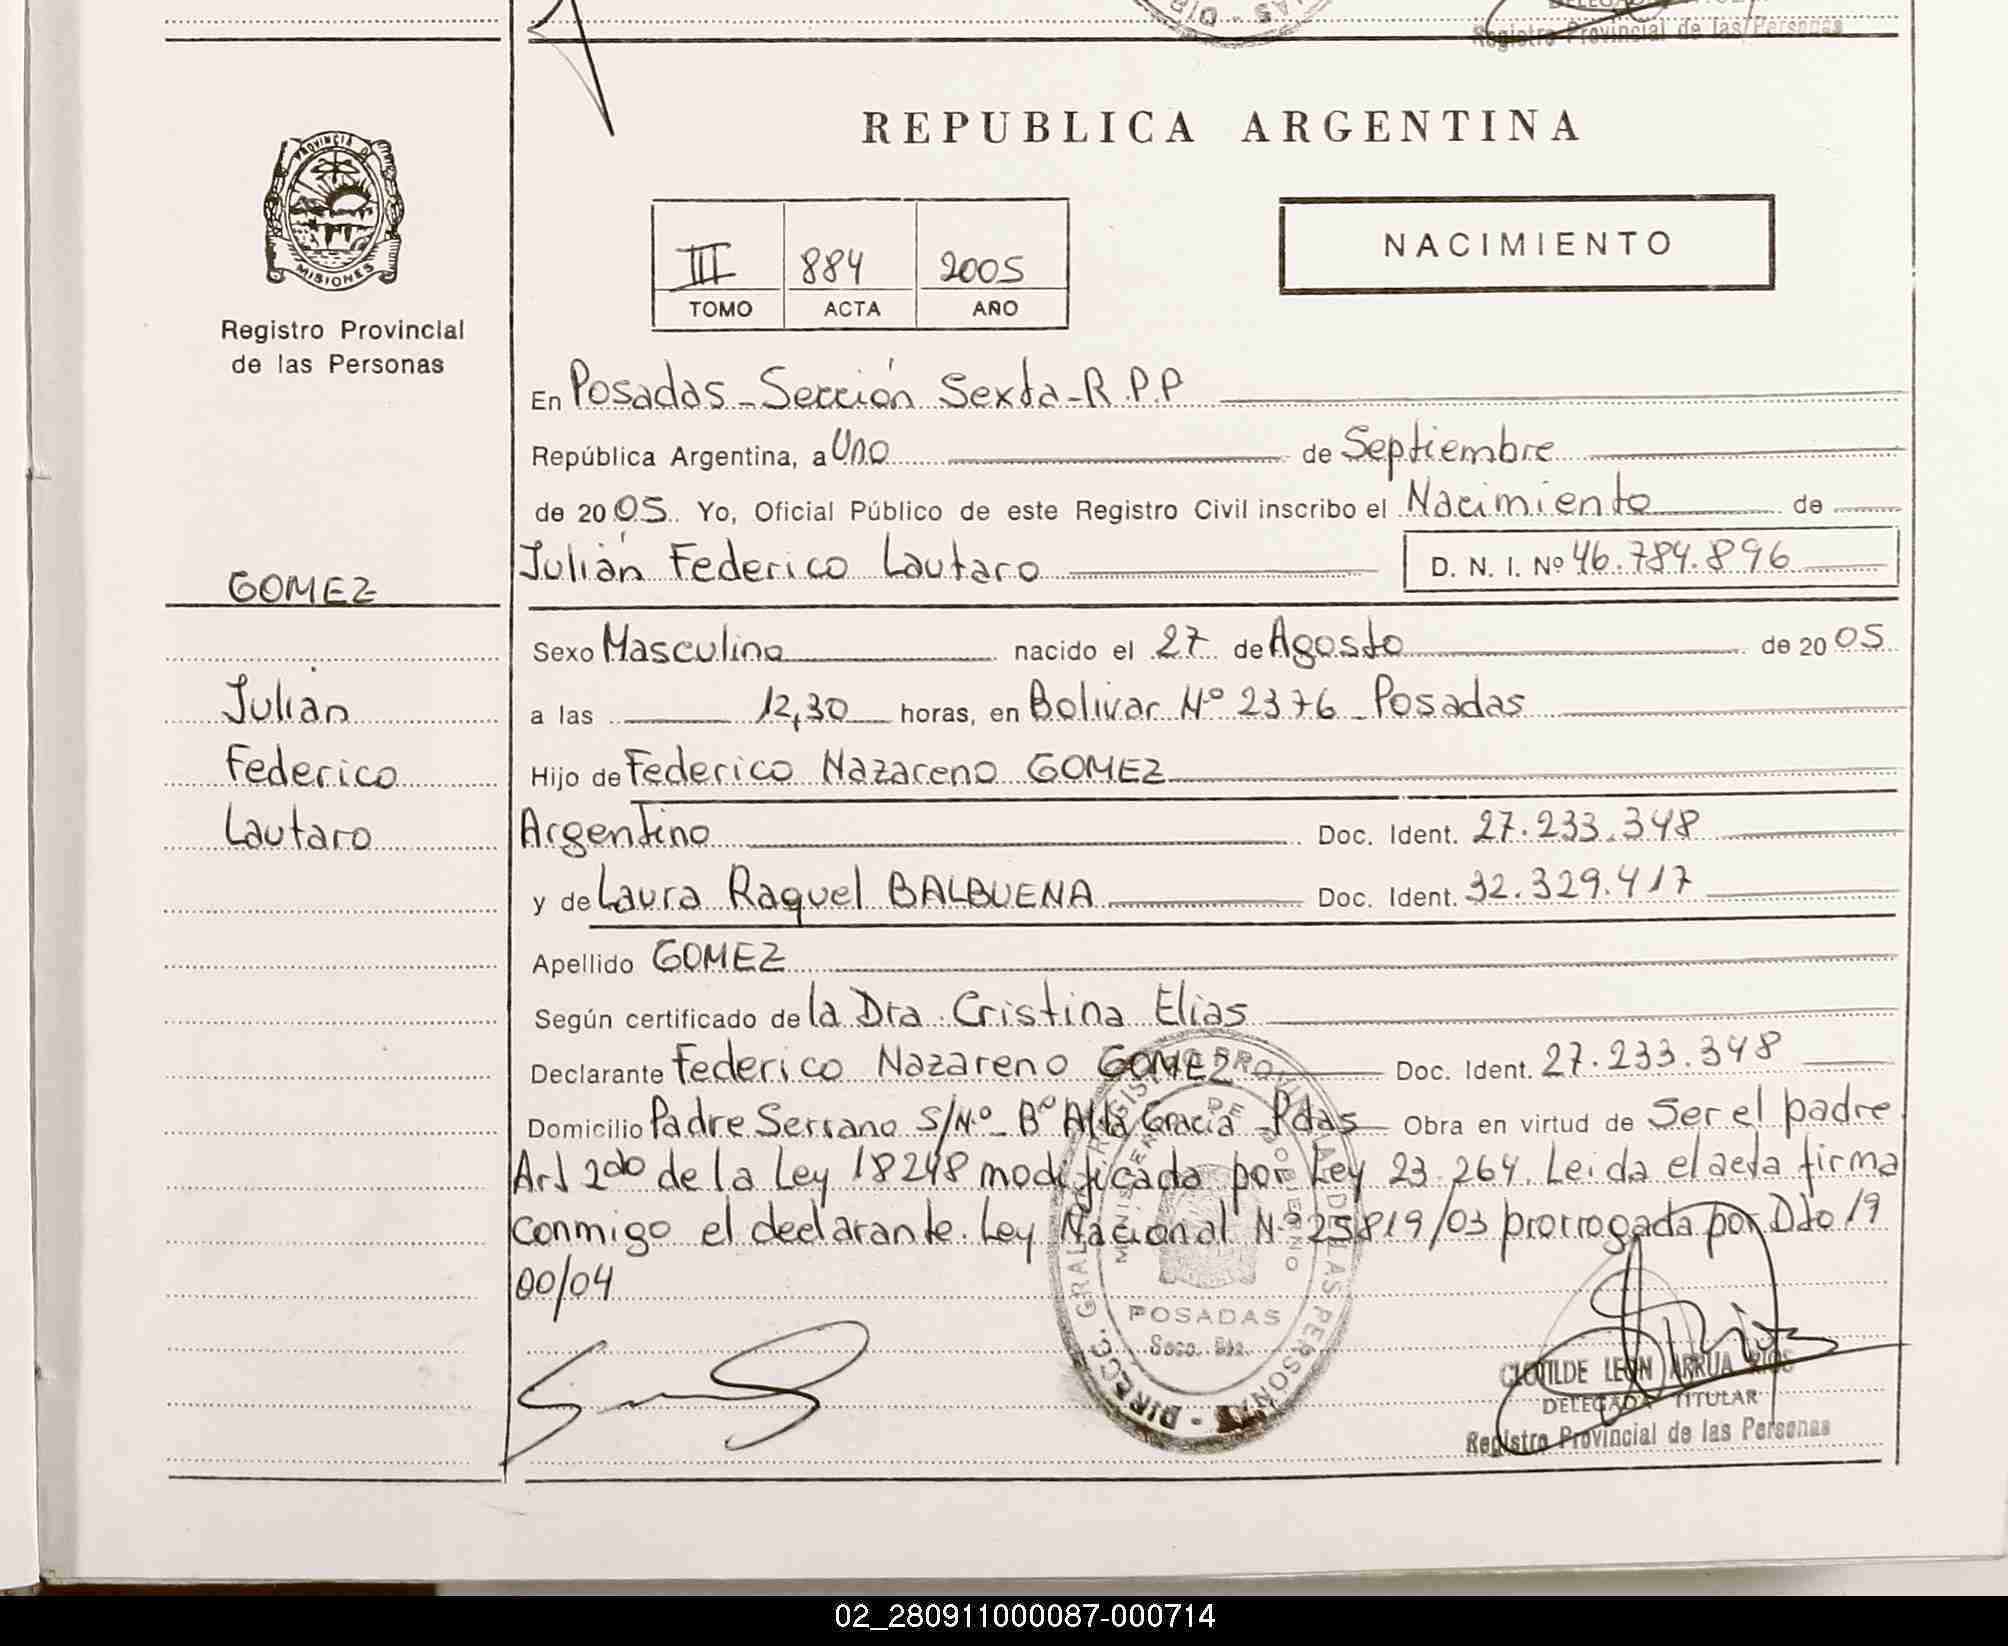 Registro Provincial de las Personas
PROVINCIA DE
MISIONES
Registro Provincial
de las Personas
GOMEZ
Julián
Federico
Lautaro
REPUBLICA ARGENTINA
III 884 2005
TOMO ACTA AÑO
NACIMIENTO
En Posadas - Sección Sexta - R.P.P
República Argentina, a Uno de Septiembre
de 2005. Yo, Oficial Público de este Registro Civil inscribo el Nacimiento de
Julián Federico Lautaro D. N. I. Nº 46.784.896
Sexo Masculino nacido el 27 de Agosto de 2005
a las 12,30 horas, en Bolivar Nº 2376 - Posadas
Hijo de Federico Nazareno GOMEZ
Argentino Doc. Ident. 27.233.348
y de Laura Raquel BALBUENA Doc. Ident. 32.329.417
Apellido GOMEZ
Según certificado de la Dra. Cristina Elias
Declarante Federico Nazareno GOMEZ Doc. Ident. 27.233.348
Domicilio Padre Serrano S/Nº - Bº Alta Gracia - Pdas Obra en virtud de Ser el padre
Art 2do de la Ley 18248 modificada por Ley 23.264. Leida el acta firma
conmigo el declarante. Ley Nacional Nº 25819/03 prorrogada por Dto 19
00/04
DIRECC. GRAL. DEL REGISTRO PROVINCIAL DE LAS PERSONAS
MINISTERIO DE GOBIERNO
POSADAS
CLOTILDE LEON ARRUA RIOS
DELEGADA TITULAR
Registro Provincial de las Personas
02_280911000087-000714